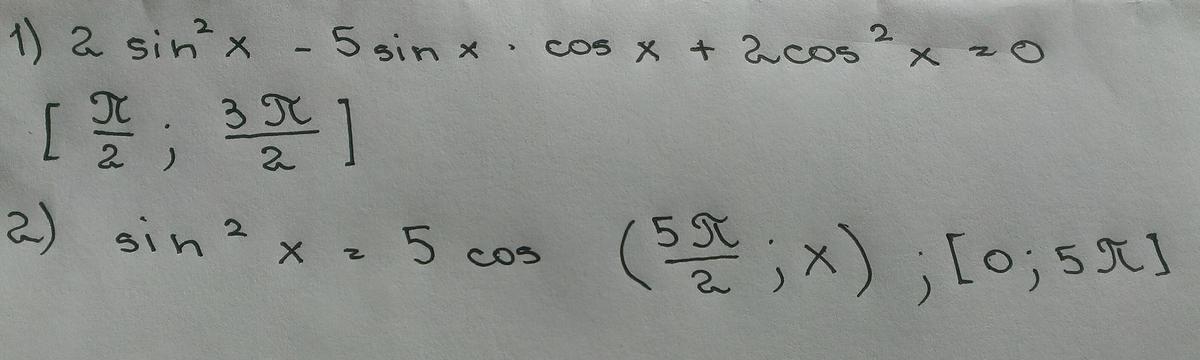 1) 2 sin² x - 5 sin x · cos x + 2 cos² x = 0
[ π/2 ; 3π/2 ]
2) sin² x = 5 cos (5π/2 ; x) ; [0; 5π]